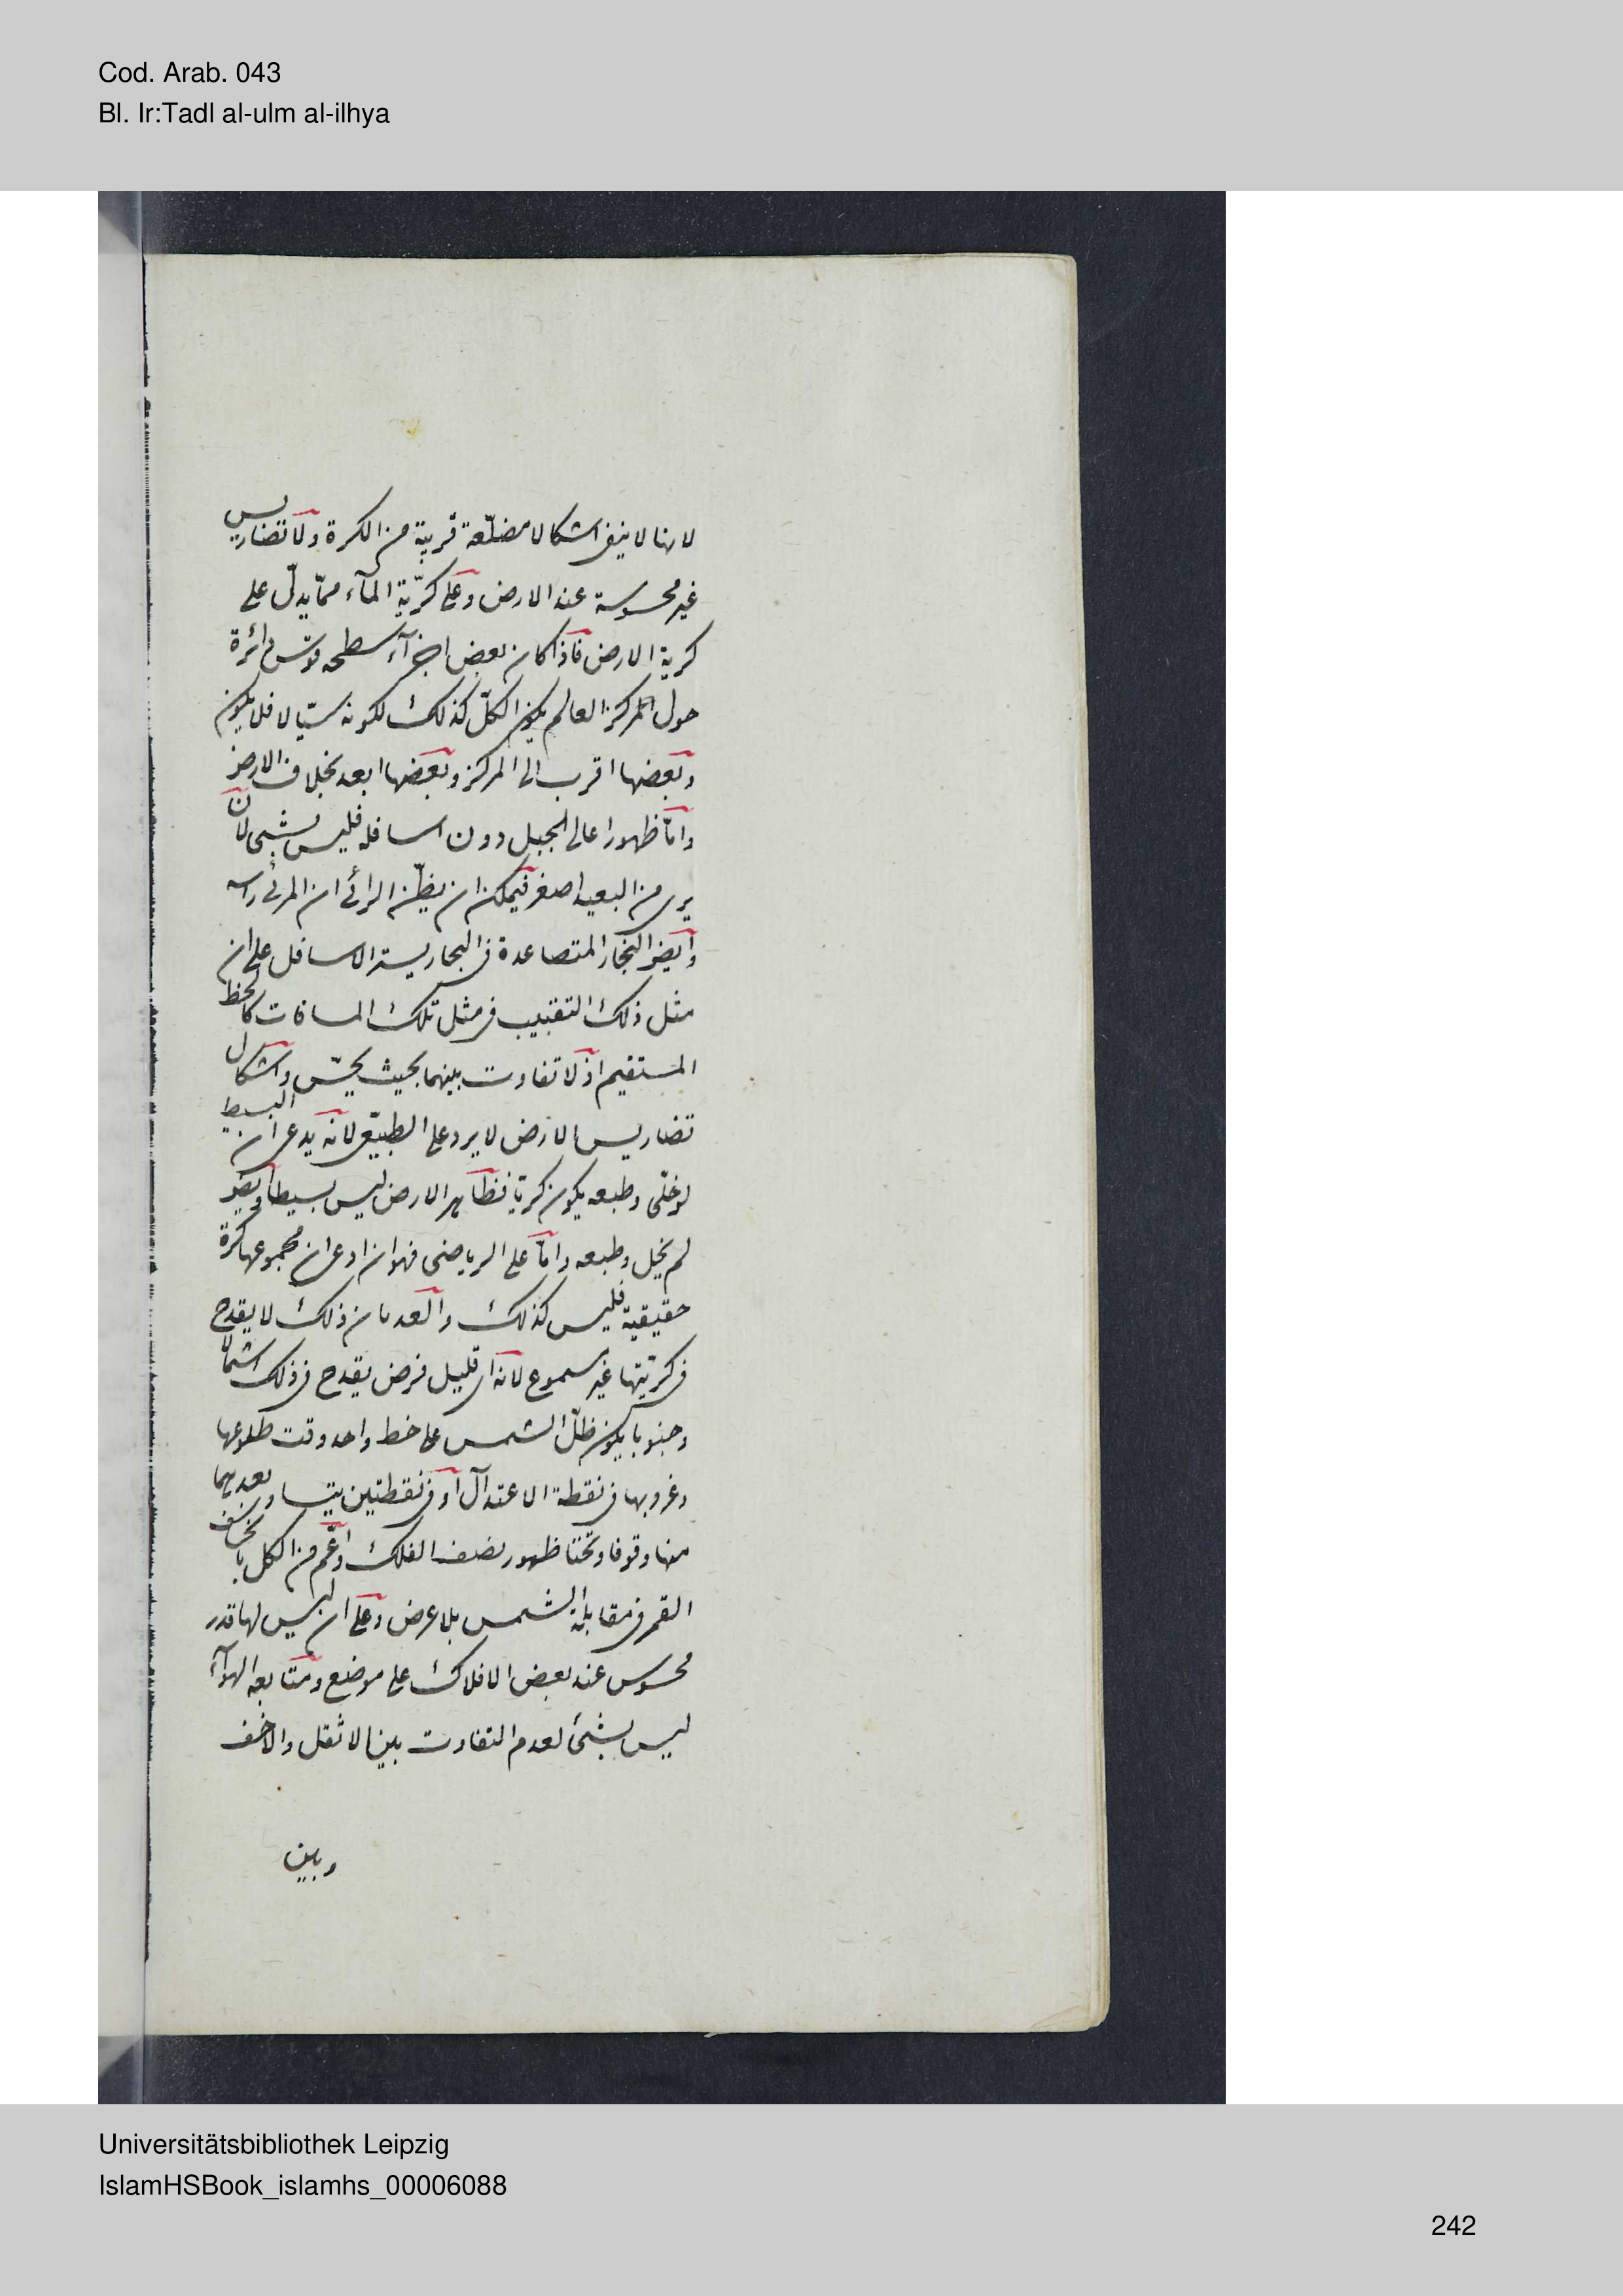 Cod. Arab. 043
Bl. Ir:Tadl al-ulm al-ilhya
لانها لا ينفى اشكالا مضلّعة قريبة من الكرة ولا تضاريس
غير محسوسة عند الارض وعلى كرّية المآء ممّا يدلّ على
كرية الارض فاذا كان بعض اجزآء سطحه قوس دائرة
حول المركز العالم يكون الكلّ كذلك لكونه سيّالا فلا يكون
وبعضها اقرب الى المركز وبعضها ابعد بخلاف الارض
وامّا ظهور اعالى الجبل دون اسافله فليس بشئ لان
يرى من البعيد اصغر فيمكن ان يظنّ الرائى ان المرئى راسه
وايضا البخار المتصاعدة فى البحار يستر الاسافل على ان
مثل ذلك التقبيب فى مثل تلك المسافات كالخط
المستقيم اذ لا تفاوت بينهما بحيث يحسّ واشكال
تضاريس الارض لا يرد على الطبيعى لانه يدعى ان البسيط
لو خلّى وطبعه يكون كريّا فظاهر الارض ليس بسيطا وايضا
لم يخل وطبعه وامّا على الرياضى فهو ان ادعى ان مجموعها كرة
حقيقية فليس كذلك والعد بان ذلك لا يقدح
فى كريّتها غير مسموع لانه اى قليل فرض يقدح فى ذلك اشمالا
وجنوبا يكون ظلّ الشمس على خط واحد وقت طلوعها
وغروبها فى نقطة الاعتدآل او فى نقطتين يتساوى بعدهما
منها وقوفا وتحتا ظهور نصف الفلك واعمّ من الكل بانخساف
القمر فى مقابلة الشمس بلا عرض وعلى ان ليس لها قدر
محسوس عند بعض الافلاك على موضع ومتابعه الهوآء
ليس بشئ لعدم التفاوت بين الاثقل والاخف
وبين
Universitätsbibliothek Leipzig
IslamHSBook_islamhs_00006088
242